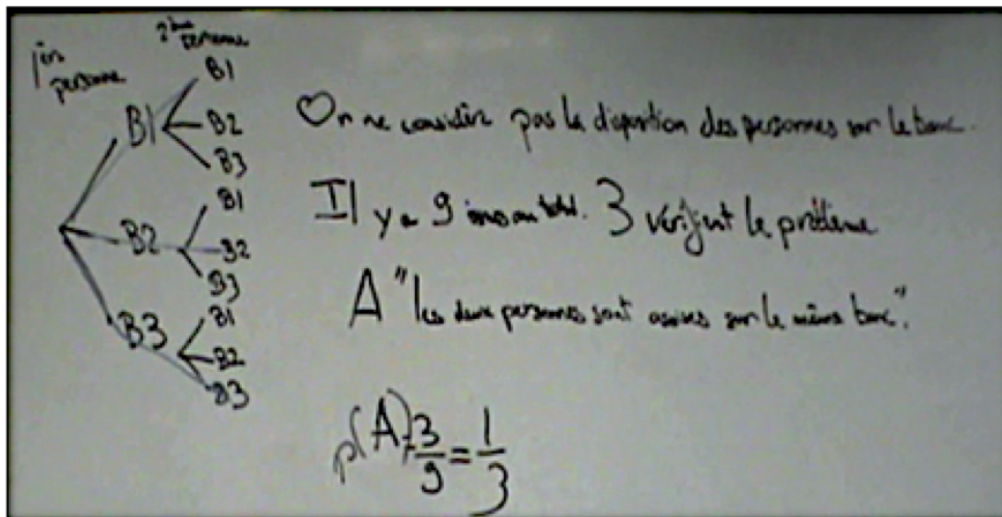 1ère personne
2ème personne
B1
B1
B2
B3
B2
B1
B2
B3
B3
B1
B2
B3
On ne considère pas la disposition des personnes sur le banc.
Il y a 9 au total. 3 vérifient le problème
A "les deux personnes sont assises sur le même banc".
p(A)=3/9=1/3